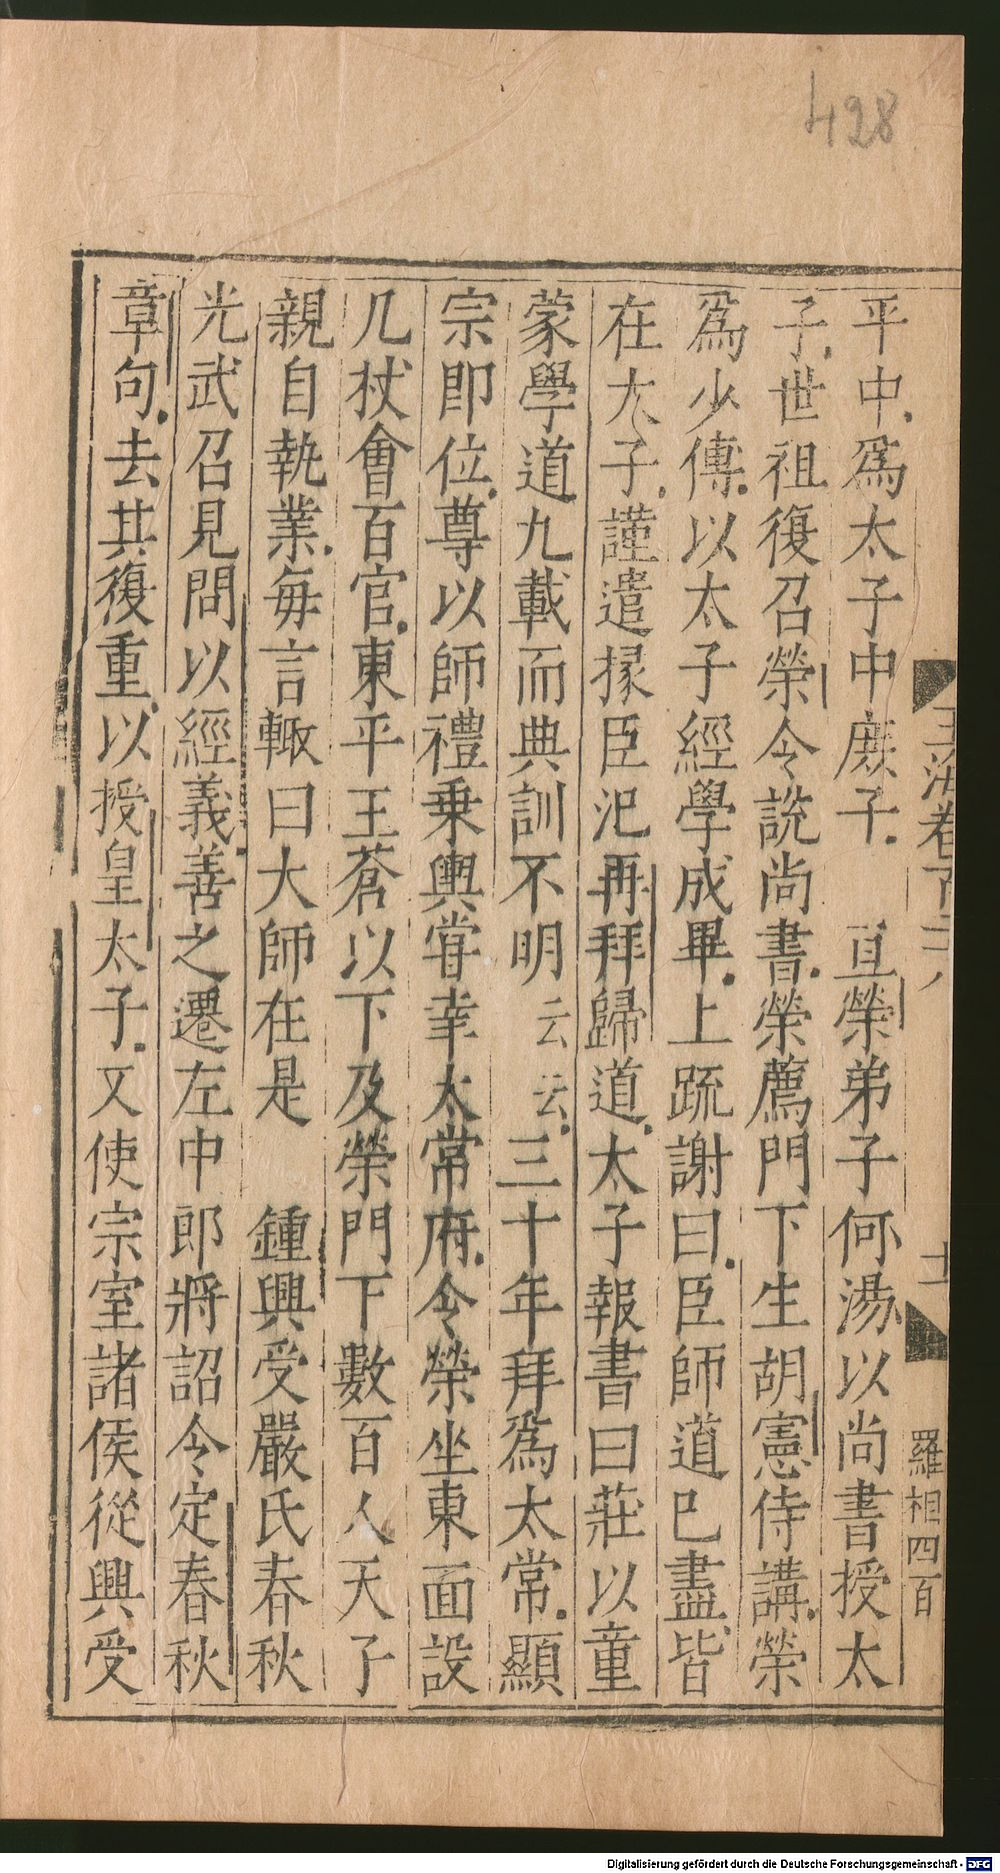 428
玉海卷百二八
十一
羅相四百
平中爲太子中庶子 桓榮弟子何湯以尚書授太
子世祖復召榮令說尚書榮薦門下生胡憲侍講榮
爲少傅以太子經學成畢上疏謝曰臣師道已盡皆
在太子謹遣掾臣汜再拜歸道太子報書曰莊以童
蒙學道九載而典訓不明云云三十年拜爲太常顯
宗即位尊以師禮乗輿甞幸太常府令榮坐東面設
几杖會百官東平王蒼以下及榮門下數百人天子
親自執業每言輙曰大師在是 鍾興受嚴氏春秋
光武召見問以經義善之遷左中郎將詔令定春秋
章句去其復重以授皇太子又使宗室諸侯從興受
Digitalisierung gefördert durch die Deutsche Forschungsgemeinschaft - DFG